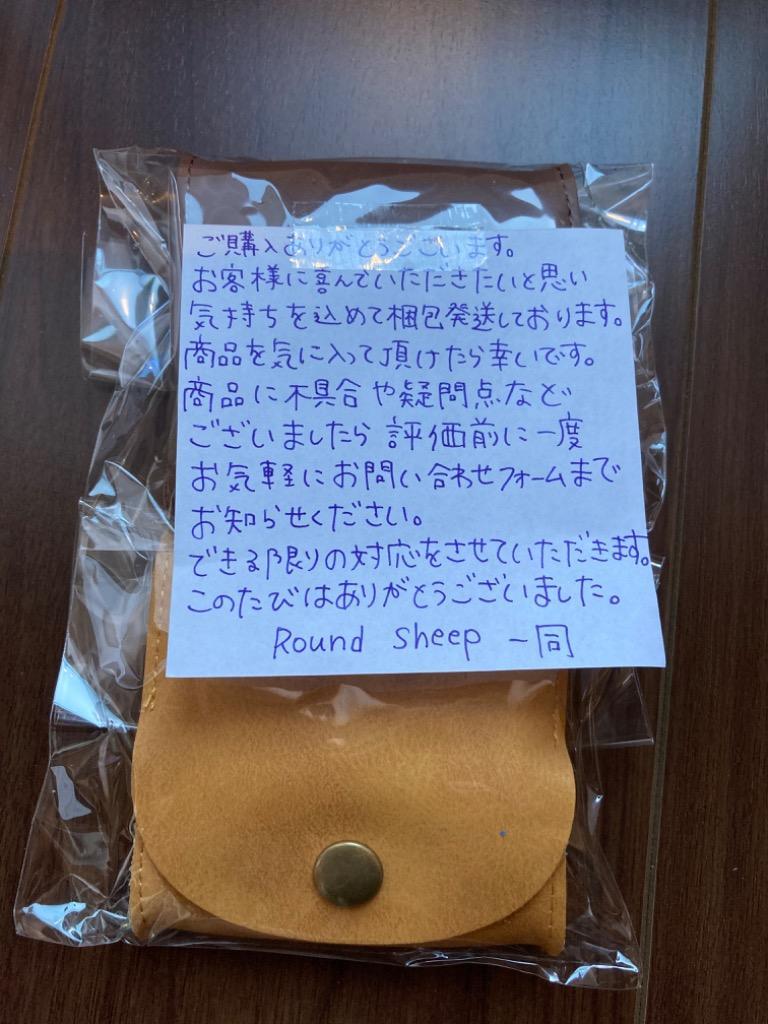 ご購入ありがとうございます。
お客様に喜んでいただきたいと思い
気持ちを込めて梱包発送しております。
商品を気に入って頂けたら幸いです。
商品に不具合や疑問点など
ございましたら評価前に一度
お気軽にお問い合わせフォームまで
お知らせください。
できる限りの対応をさせていただきます。
このたびはありがとうございました。
Round Sheep 一同